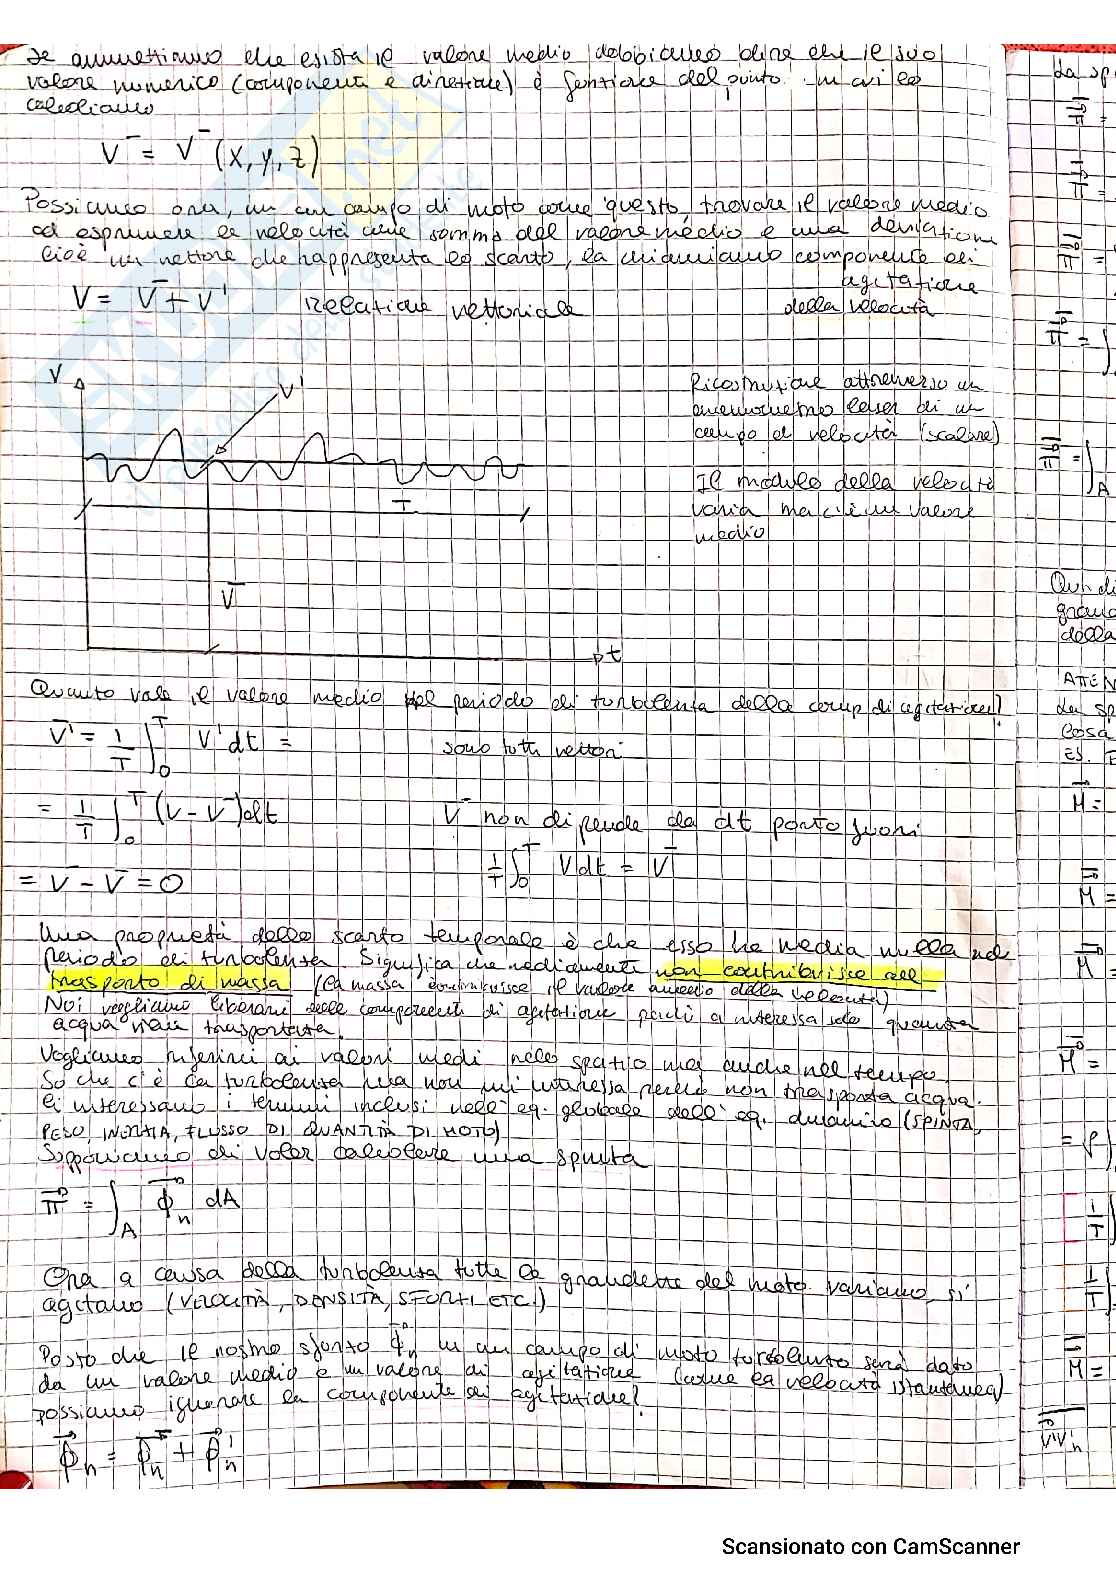 Se ammettiamo che esista il valore medio dobbiamo dire che il suo
valore numerico (componenti e direzione) è funzione del punto in cui lo
calcoliamo
V̄ = V̄ (x, y, z)
Possiamo ora, in un campo di moto come questo, trovare il valore medio
ed esprimere la velocità come somma del valore medio e una deviazione
cioè un vettore che rappresenta lo scarto, la chiamiamo componente di
agitazione
V = V̄ + V' relazione vettoriale della velocità
V
V'
Ricostruzione attraverso un
anemometro laser di un
campo di velocità (scalare)
Il modulo della velocità
varia ma c'è un valore
medio
T
V̄
t
Quanto vale il valore medio nel periodo di turbolenza della comp di agitazione?
V̄' = 1/T ∫₀ᵀ V' dt = sono tutti vettori
= 1/T ∫₀ᵀ (V - V̄) dt V̄ non dipende da dt porto fuori
= V̄ - V̄ = 0 1/T ∫₀ᵀ V dt = V̄
Una proprietà dello scarto temporale è che esso ha media nulla nel
periodo di turbolenza. Significa che mediamente non contribuisce al
trasporto di massa (la massa contribuisce il valore medio della velocità)
Noi vogliamo liberarci delle componenti di agitazione perchè ci interessa solo quanta
acqua viene trasportata.
Vogliamo riferirci ai valori medi nello spazio ma anche nel tempo.
So che c'è la turbolenza ma non mi interessa perchè non trasporta acqua.
Ci interessano i termini inclusi nell'eq. globale dell'eq. dinamico (SPINTA,
PESO, INERZIA, FLUSSO DI QUANTITÀ DI MOTO)
Supponiamo di voler calcolare una spinta
Π⃗ = ∫_A Φ⃗n dA
Ora a causa della turbolenza tutte le grandezze del moto variano, si
agitano (VELOCITÀ, DENSITÀ, SFORZI, ETC.)
Posto che il nostro sforzo Φ⃗n in un campo di moto turbolento sarà dato
da un valore medio e un valore di agitazione (come la velocità istantanea)
possiamo ignorare la componente di agitazione?
Φ⃗n = Φ̄⃗n + Φ⃗'n
La sp
Π⃗ =
Π⃗ =
Π⃗ =
Π⃗ = ∫
Π⃗ = ∫_A
Quindi
grand
della
ATTEN
La sp
cosa
ES.
M⃗ =
M⃗ =
M⃗ =
M⃗ =
= ρ
1/T
1/T
M⃗ =
V'V'n
Scansionato con CamScanner